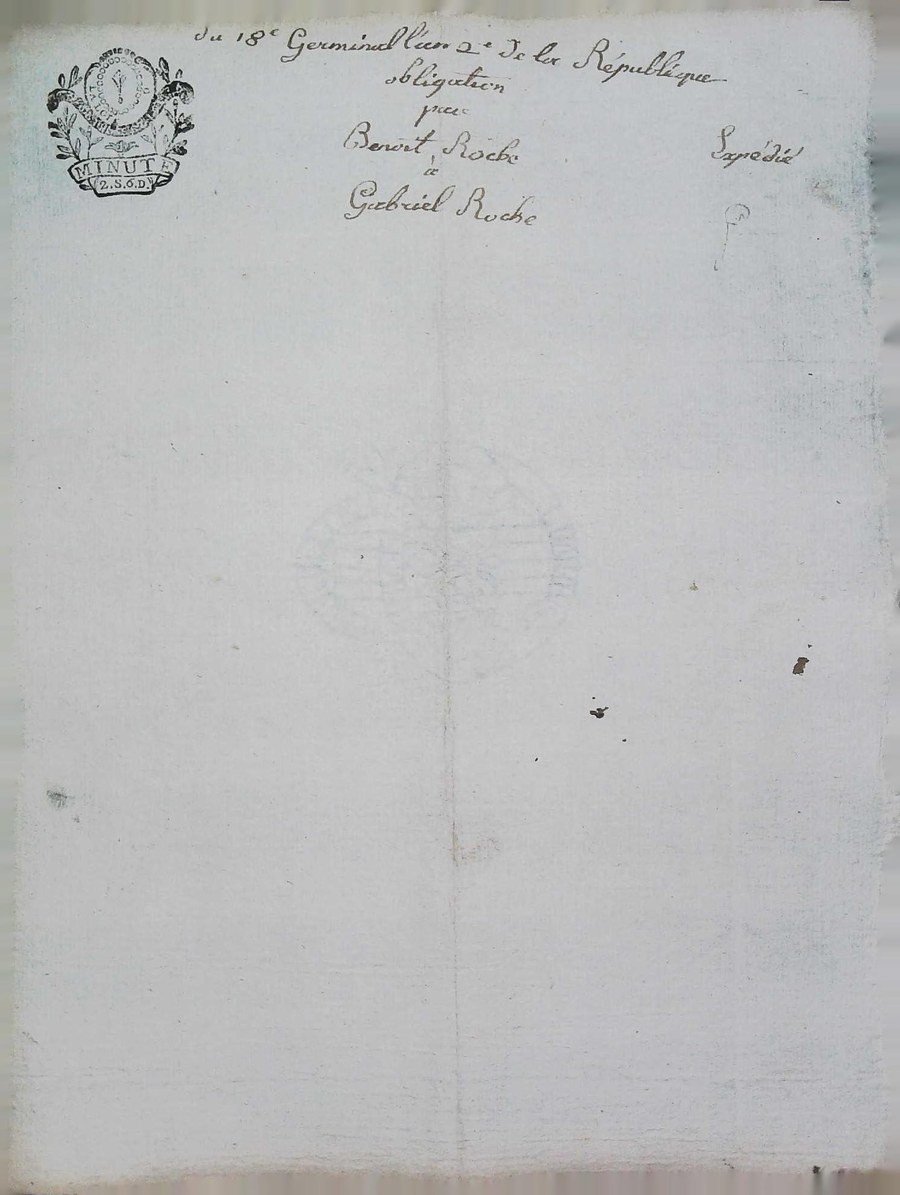 du 18e Germinal l'an 2e De la République
obligation
par
Benoit Roche
à
Gabriel Roche
Expédié
LA LOI
MINUTE
2.S.6.D.